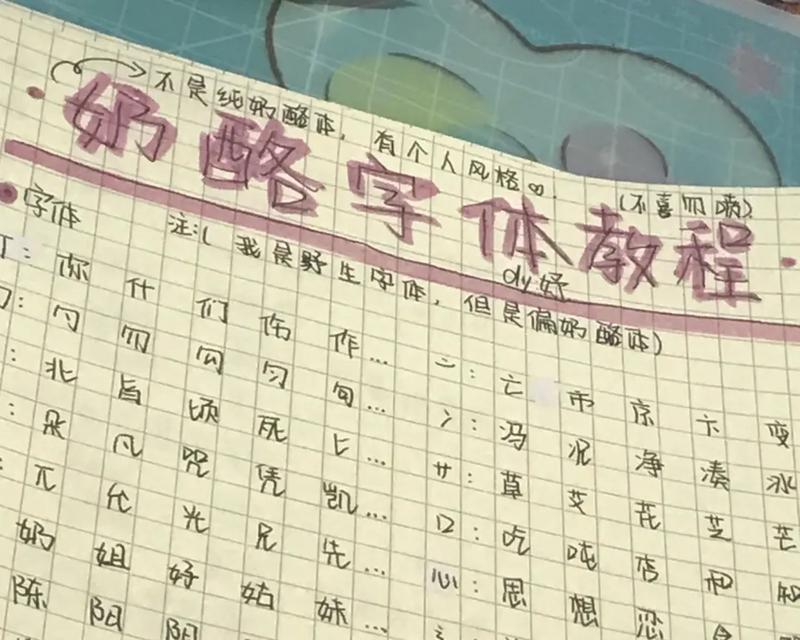 不是纯奶酪体，有个人风格
奶酪字体教程
(不喜勿喷)
dy.妤
字体
注:(我是野生字体，但是偏奶酪体)
亻: 你 什 们 伤 作...
勹: 勺 勿 勾 匀 旬...
: 北 旨 顷 死 匕...
: 朵 凡 咒 凭 凯...
: 兀 允 光 兄 先...
奶 姐 好 姑 妹...
陈 阳 阴
亠: 亡 市 京 卞 变
冫: 冯 况 净 凑 冰
艹: 草 艾 花 芝 芒
口: 吃 吨 否 和 知
心: 思 想 恋